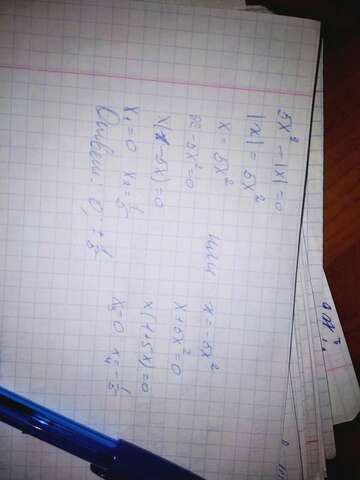 5x² - |x| = 0
|x| = 5x²
x = 5x² или x = -5x²
x - 5x² = 0 x + 5x² = 0
x(1 - 5x) = 0 x(1 + 5x) = 0
x₁ = 0 x₂ = 1/5 x₃ = 0 x₄ = -1/5
Ответ: 0, ± 1/5